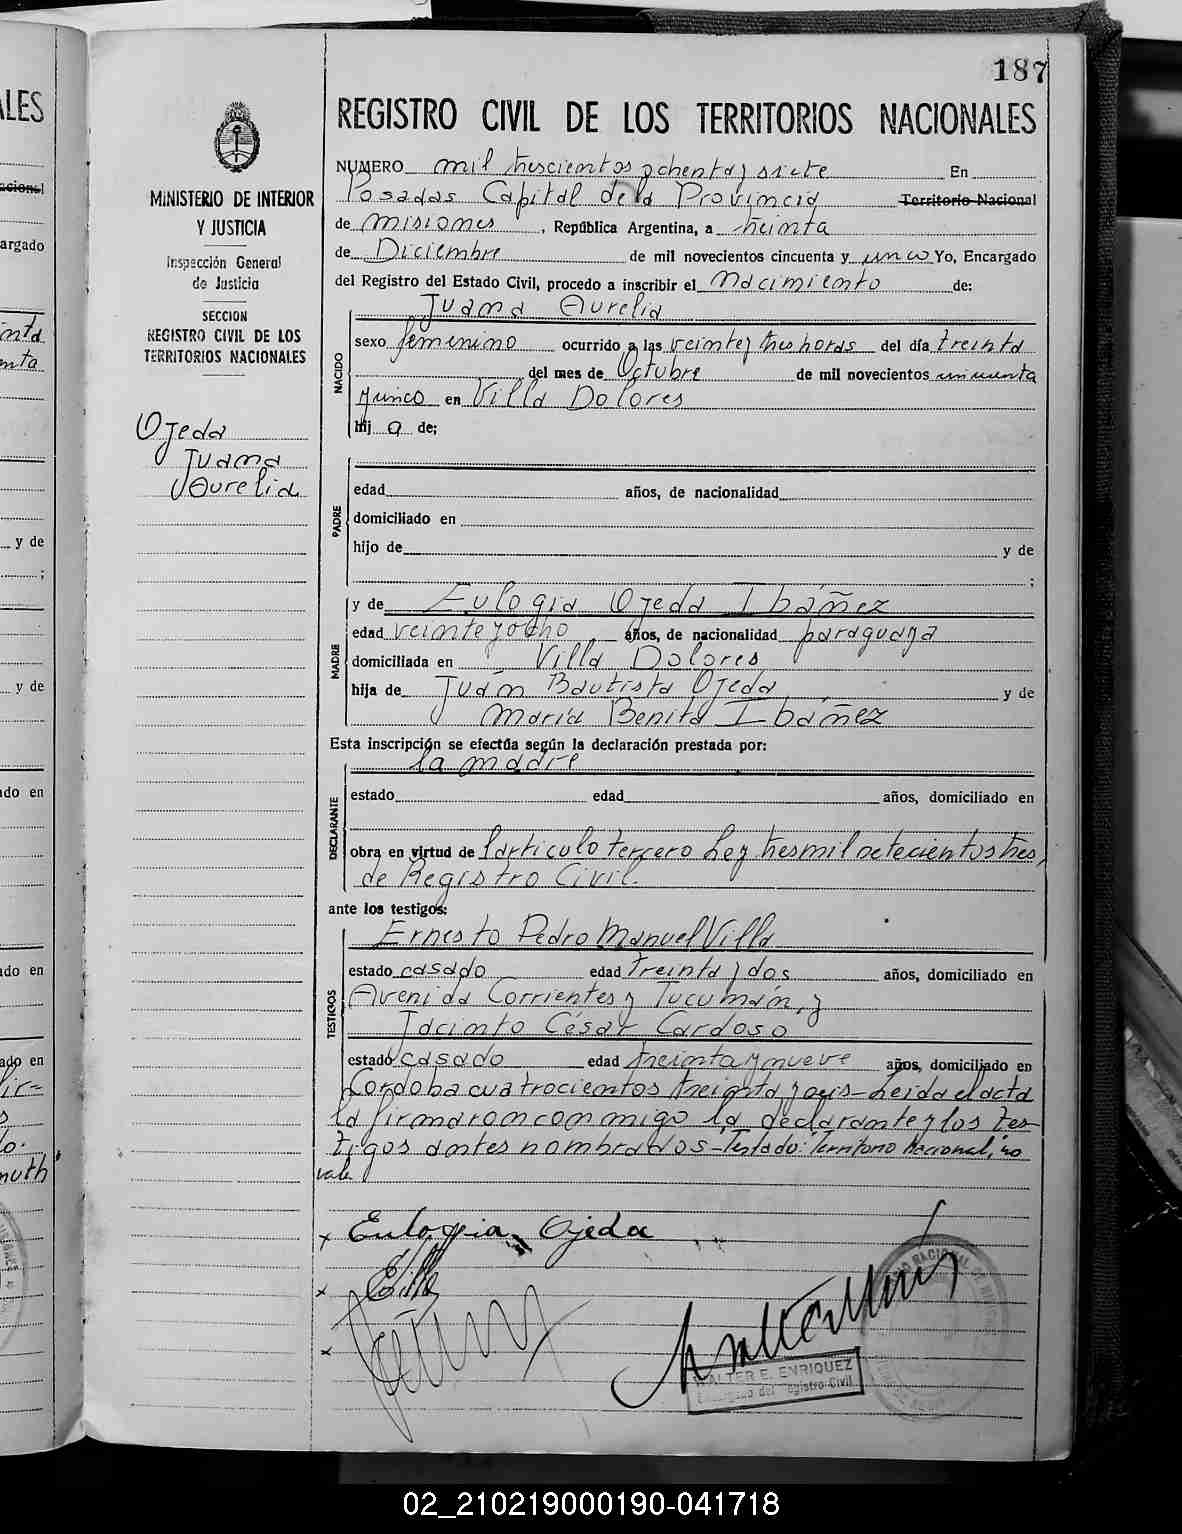 187
REGISTRO CIVIL DE LOS TERRITORIOS NACIONALES
MINISTERIO DE INTERIOR
Y JUSTICIA
Inspección General
de Justicia
SECCION
REGISTRO CIVIL DE LOS
TERRITORIOS NACIONALES
Ojeda
Juana
Aurelia
NUMERO mil trescientos ochenta y siete En
Posadas Capital de la Provincia Territorio Nacional
de Misiones, República Argentina, a treinta
de Diciembre de mil novecientos cincuenta y cinco Yo, Encargado
del Registro del Estado Civil, procedo a inscribir el Nacimiento de:
NACIDO
Juana Aurelia
sexo femenino ocurrido a las veinte y tres horas del día treinta
del mes de Octubre de mil novecientos cincuenta
y cinco en Villa Dolores
hij a de;
PADRE
edad años, de nacionalidad
domiciliado en
hijo de y de
;
MADRE
y de Eulogia Ojeda Ibáñez
edad veinte y ocho años, de nacionalidad paraguaya
domiciliada en Villa Dolores
hija de Juán Bautista Ojeda y de
María Benita Ibáñez
Esta inscripción se efectúa según la declaración prestada por:
la madre
DECLARANTE
estado edad años, domiciliado en
obra en virtud de l'articulo tercero Ley tres mil setecientos tres,
de Registro Civil.
ante los testigos:
TESTIGOS
Ernesto Pedro Manuel Villa
estado casado edad treinta y dos años, domiciliado en
Avenida Corrientes y Tucumán, y
Jacinto César Cardoso
estado casado edad treinta y nueve años, domiciliado en
Cordoba cuatrocientos treinta y seis-Leida el acta
la firmaron conmigo la declarante y los tes-
tigos antes nombrados-Testado: Territorio Nacional, no
vale
x Eulogia Ojeda
x EVilla
x
WALTER E. ENRIQUEZ
Encargado del Registro Civil
02_210219000190-041718